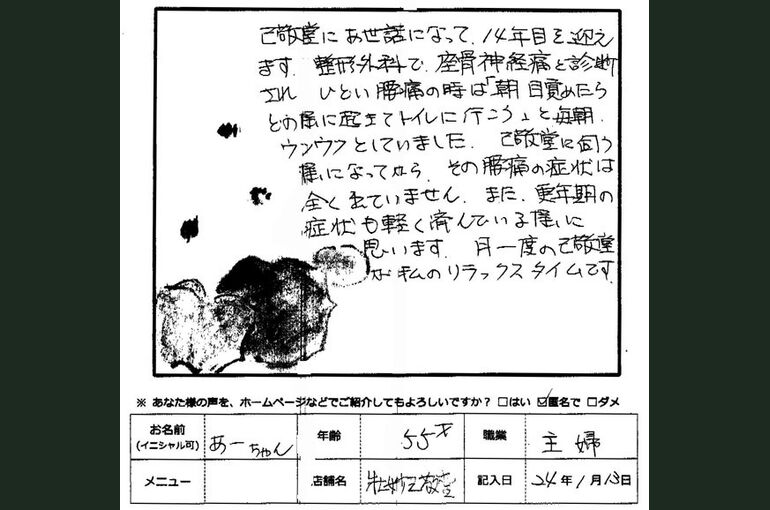 己敬堂にお世話になって、14年目を迎え
ます。整形外科で、座骨神経痛と診断
され ひどい腰痛の時は「朝 目覚めたら
どの様に起きてトイレに行こう」と毎朝、
ウンウンとしていました。 己敬堂に伺う
様になってから、その腰痛の症状は
全く出ていません。また、更年期の
症状も軽く済んでいる様に
思います。 月一度の己敬堂
が私のリラックスタイムです。
※ あなた様の声を、ホームページなどでご紹介してもよろしいですか? □はい ☑匿名で □ダメ
お名前 (イニシャル可) あーちゃん 年齢 55才 職業 主婦
メニュー 店舗名 己敬堂 記入日 24年1月13日